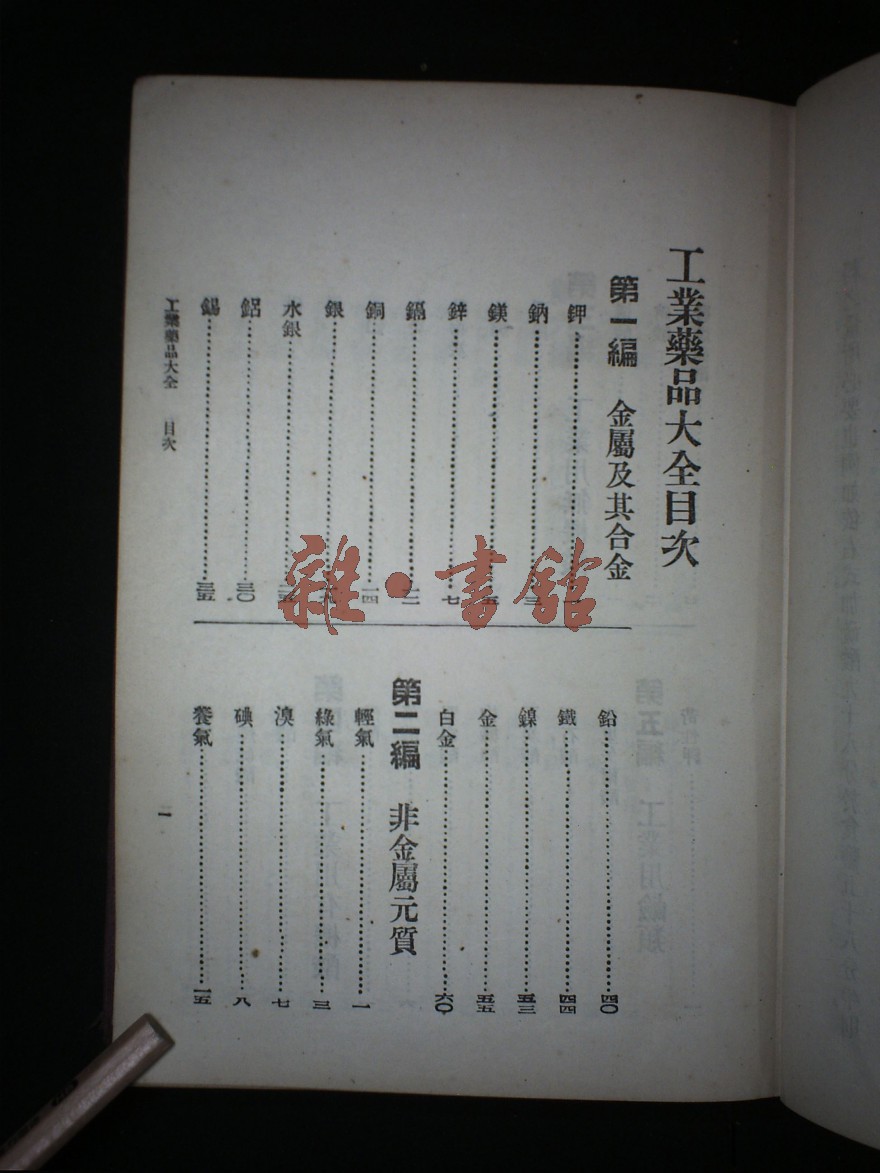 工業藥品大全目次
第一編 金屬及其合金
鉀
鈉
鎂
鋅 七
鎘 一二
銅 一四
銀
水銀 二五
鋁 三〇
錫 三五
鉛 四〇
鐵 四四
鎳 五三
金 五五
白金 六〇
第二編 非金屬元質
輕氣 一
綠氣 三
溴 七
碘 八
養氣 一五
工業藥品大全 目次
一
雜·書館